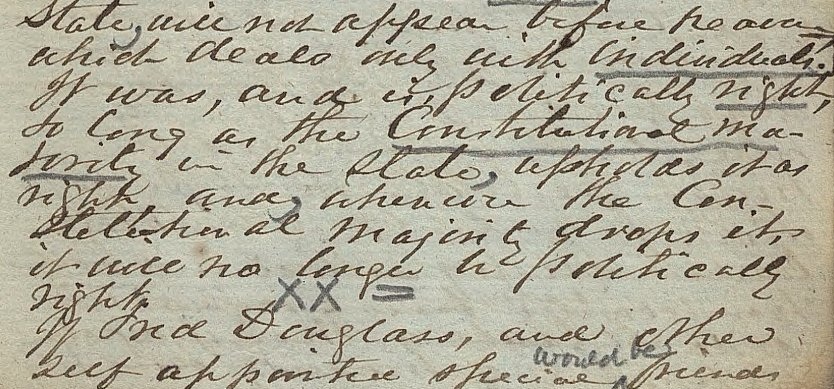 State, will not appear before heaven
which deals only with individuals.
It was, and is, politically right,
so long as the Constitutional ma-
jority in the State, upholds it as
right, and, whenever the Con-
stitutional majority drops it,
it will no longer be politically
right. XX =
If Fred Douglass, and other
would be
self appointed special friends